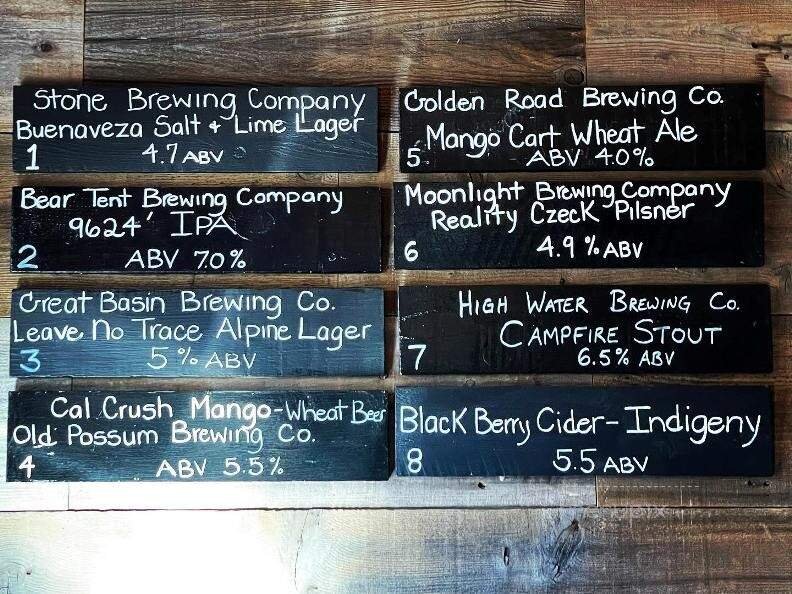 Stone Brewing Company
Buenaveza Salt + Lime Lager
1 4.7 ABV
Bear Tent Brewing Company
9624' IPA
2 ABV 7.0%
Great Basin Brewing Co.
Leave No Trace Alpine Lager
3 5% ABV
Cal Crush Mango-Wheat Beer
Old Possum Brewing Co.
4 ABV 5.5%
Golden Road Brewing Co.
Mango Cart Wheat Ale
5 ABV 4.0%
Moonlight Brewing Company
Reality Czeck Pilsner
6 4.9% ABV
High Water Brewing Co.
Campfire Stout
7 6.5% ABV
Black Berry Cider-Indigeny
8 5.5 ABV